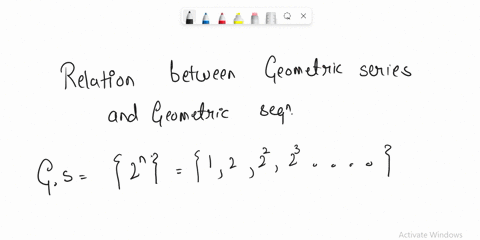 Relation between Geometric series
and Geometric seqn.
G.S = {2ⁿ} = {1, 2, 2², 2³ . . . . }
Activate Windows